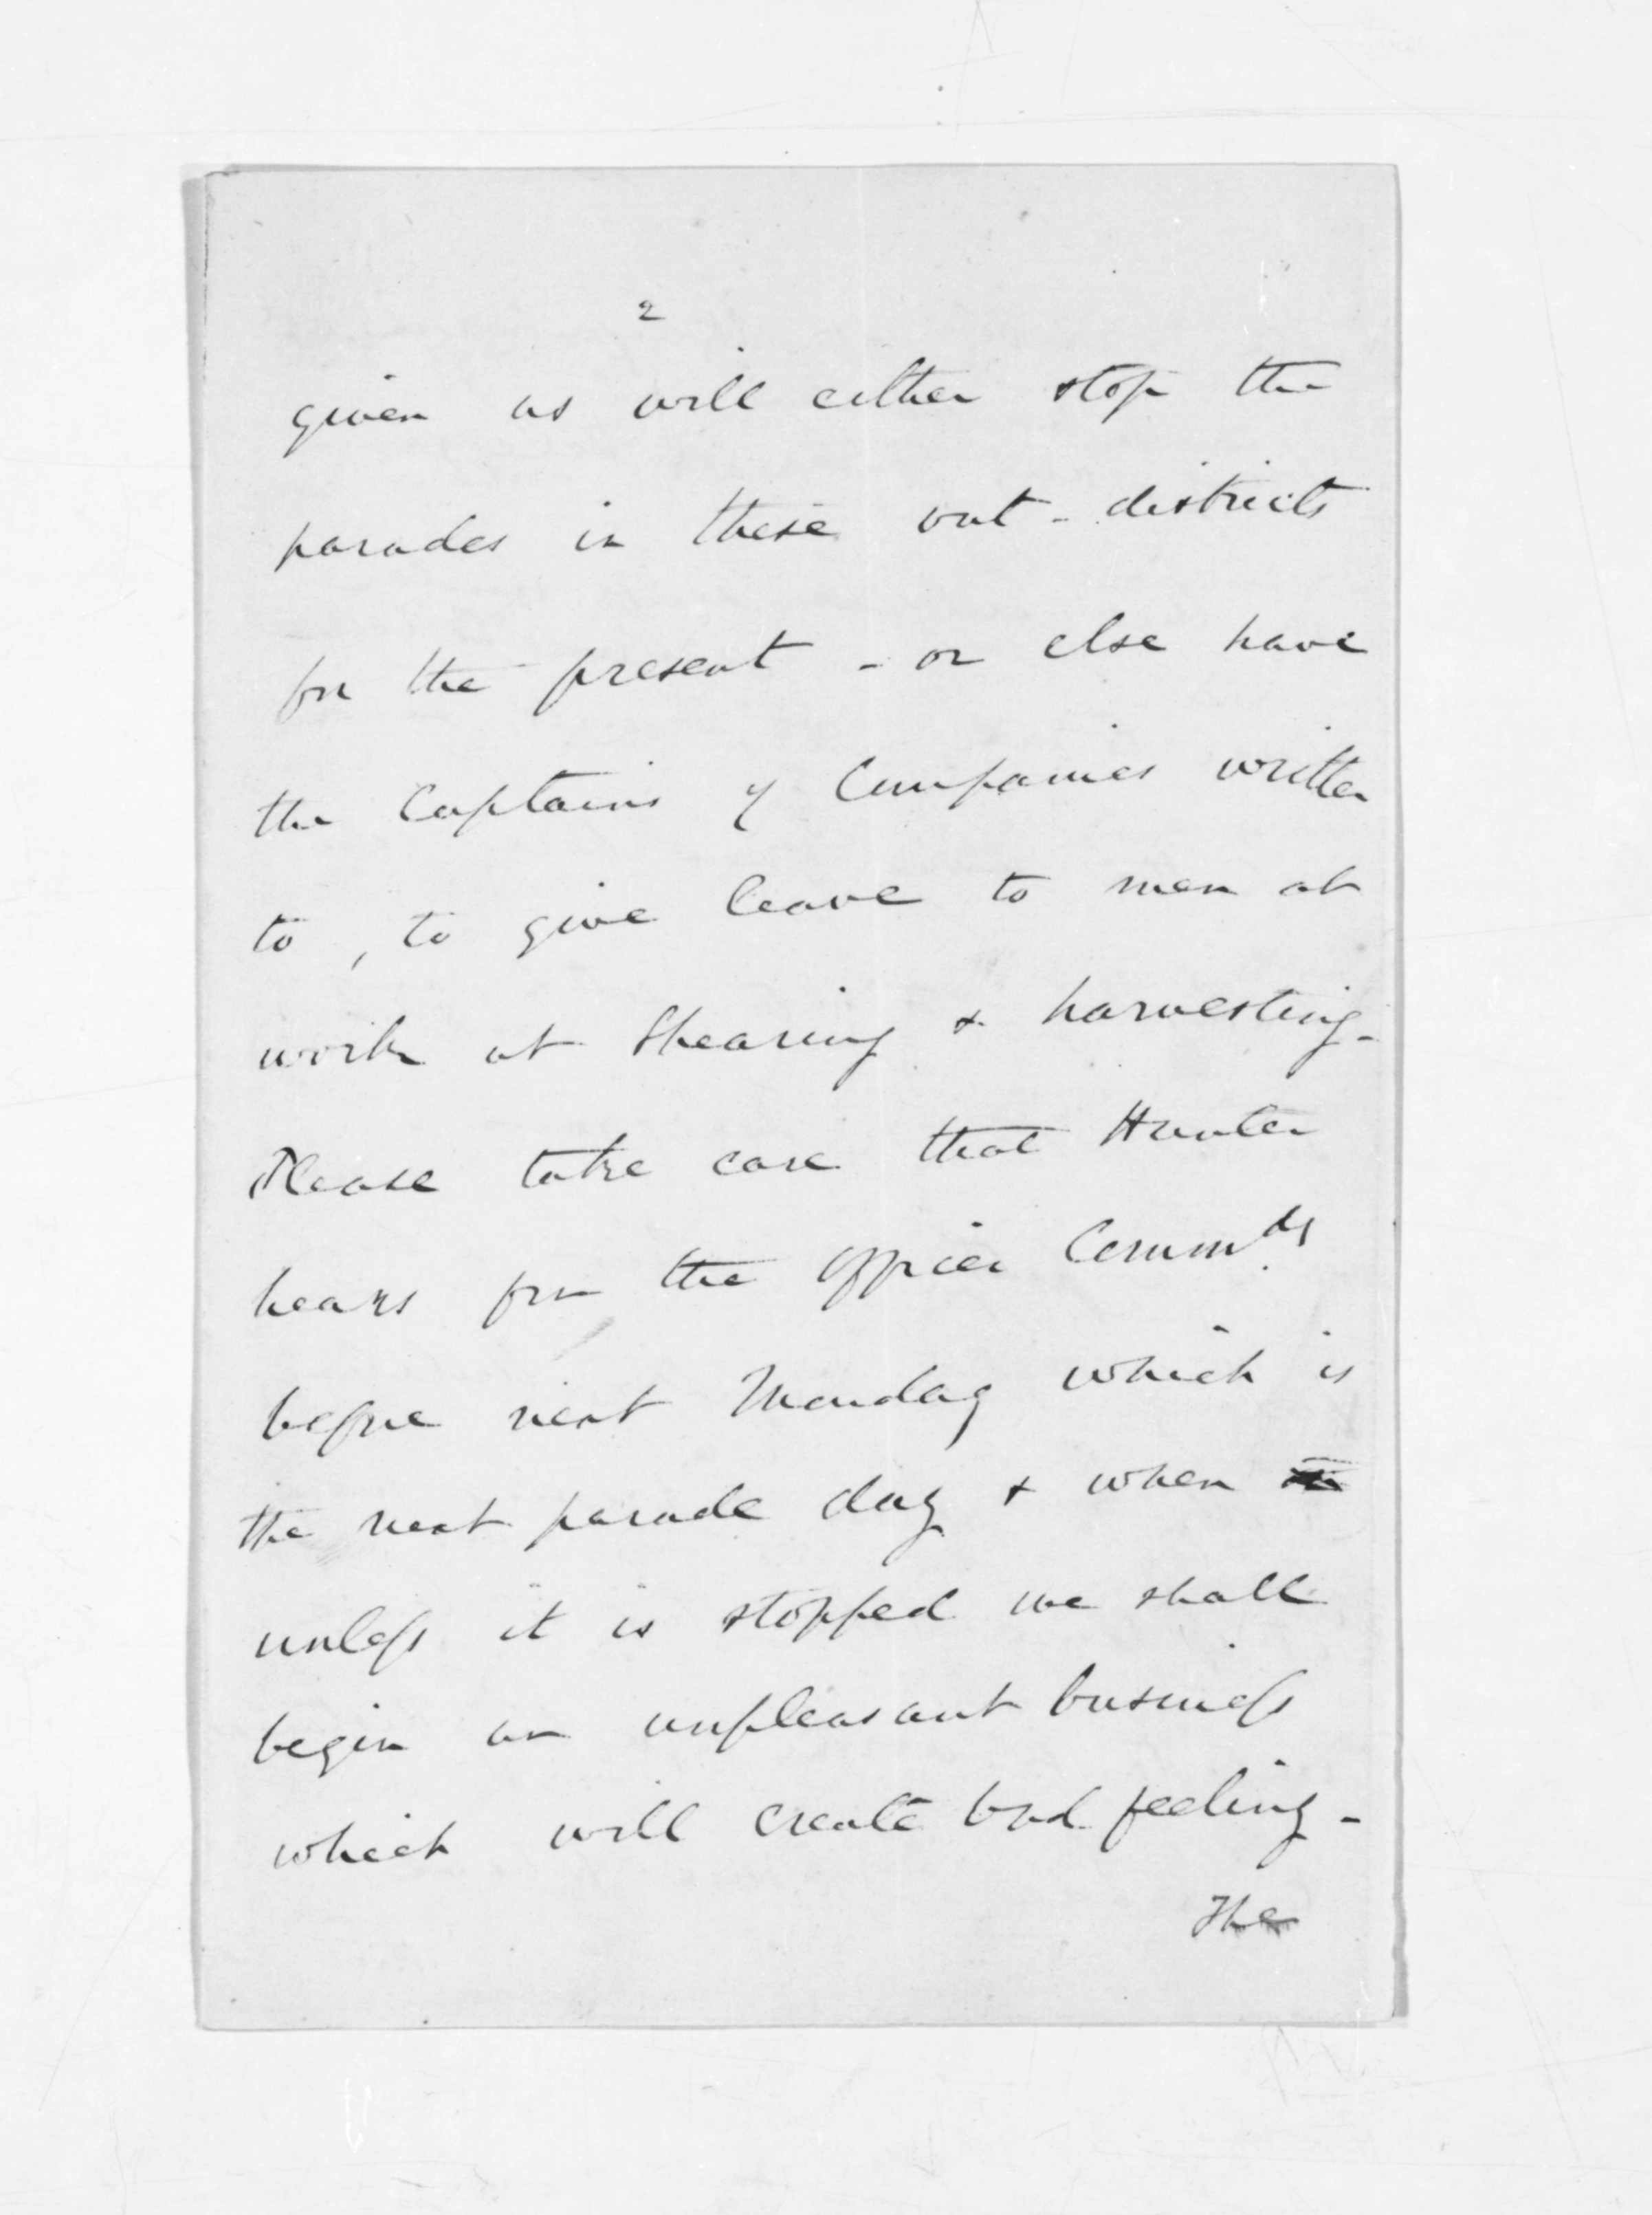 2
given as will either stop the
parades in these out-districts
for the present - or else have
the Captains of Companies written
to, to give leave to men at
work at Shearing & harvesting -
Please take care that Hunter
hears fm the Officer Comm.dg
before next Monday which is
the next parade day & when
unless it is stopped we shall
begin an unpleasant business
which will create bad feeling -
The